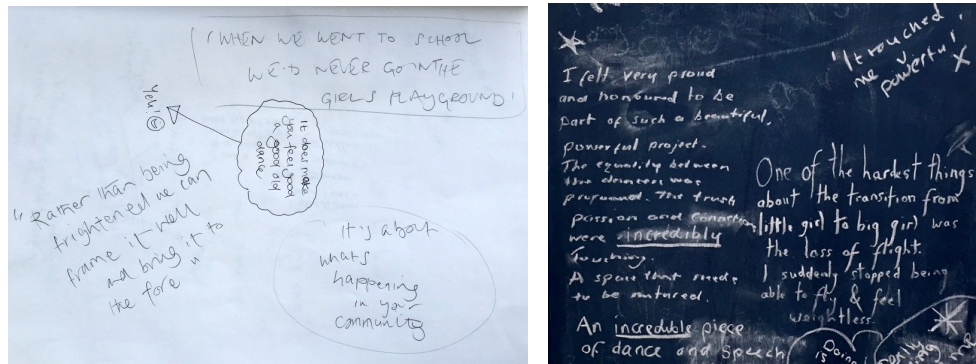 'WHEN WE WENT TO SCHOOL
WE'D NEVER GO IN THE
GIRLS PLAYGROUND'
Yeh!
It does make
you feel good
a good old
dance
"Rather than being
frightened we can
frame it well
and bring it to
the fore"
It's about
what's
happening
in your
community
"It touched
me
powerful"
x
I felt very proud
and honoured to be
part of such a beautiful,
powerful project.
The equality between
the dancers was
profound. The trust
passion and connection
were incredibly
touching.
A space that needs
to be nurtured.
An incredible piece
of dance and speech
One of the hardest things
about the transition from
little girl to big girl was
the loss of flight.
I suddenly stopped being
able to fly & feel
weightless.
Doing
is